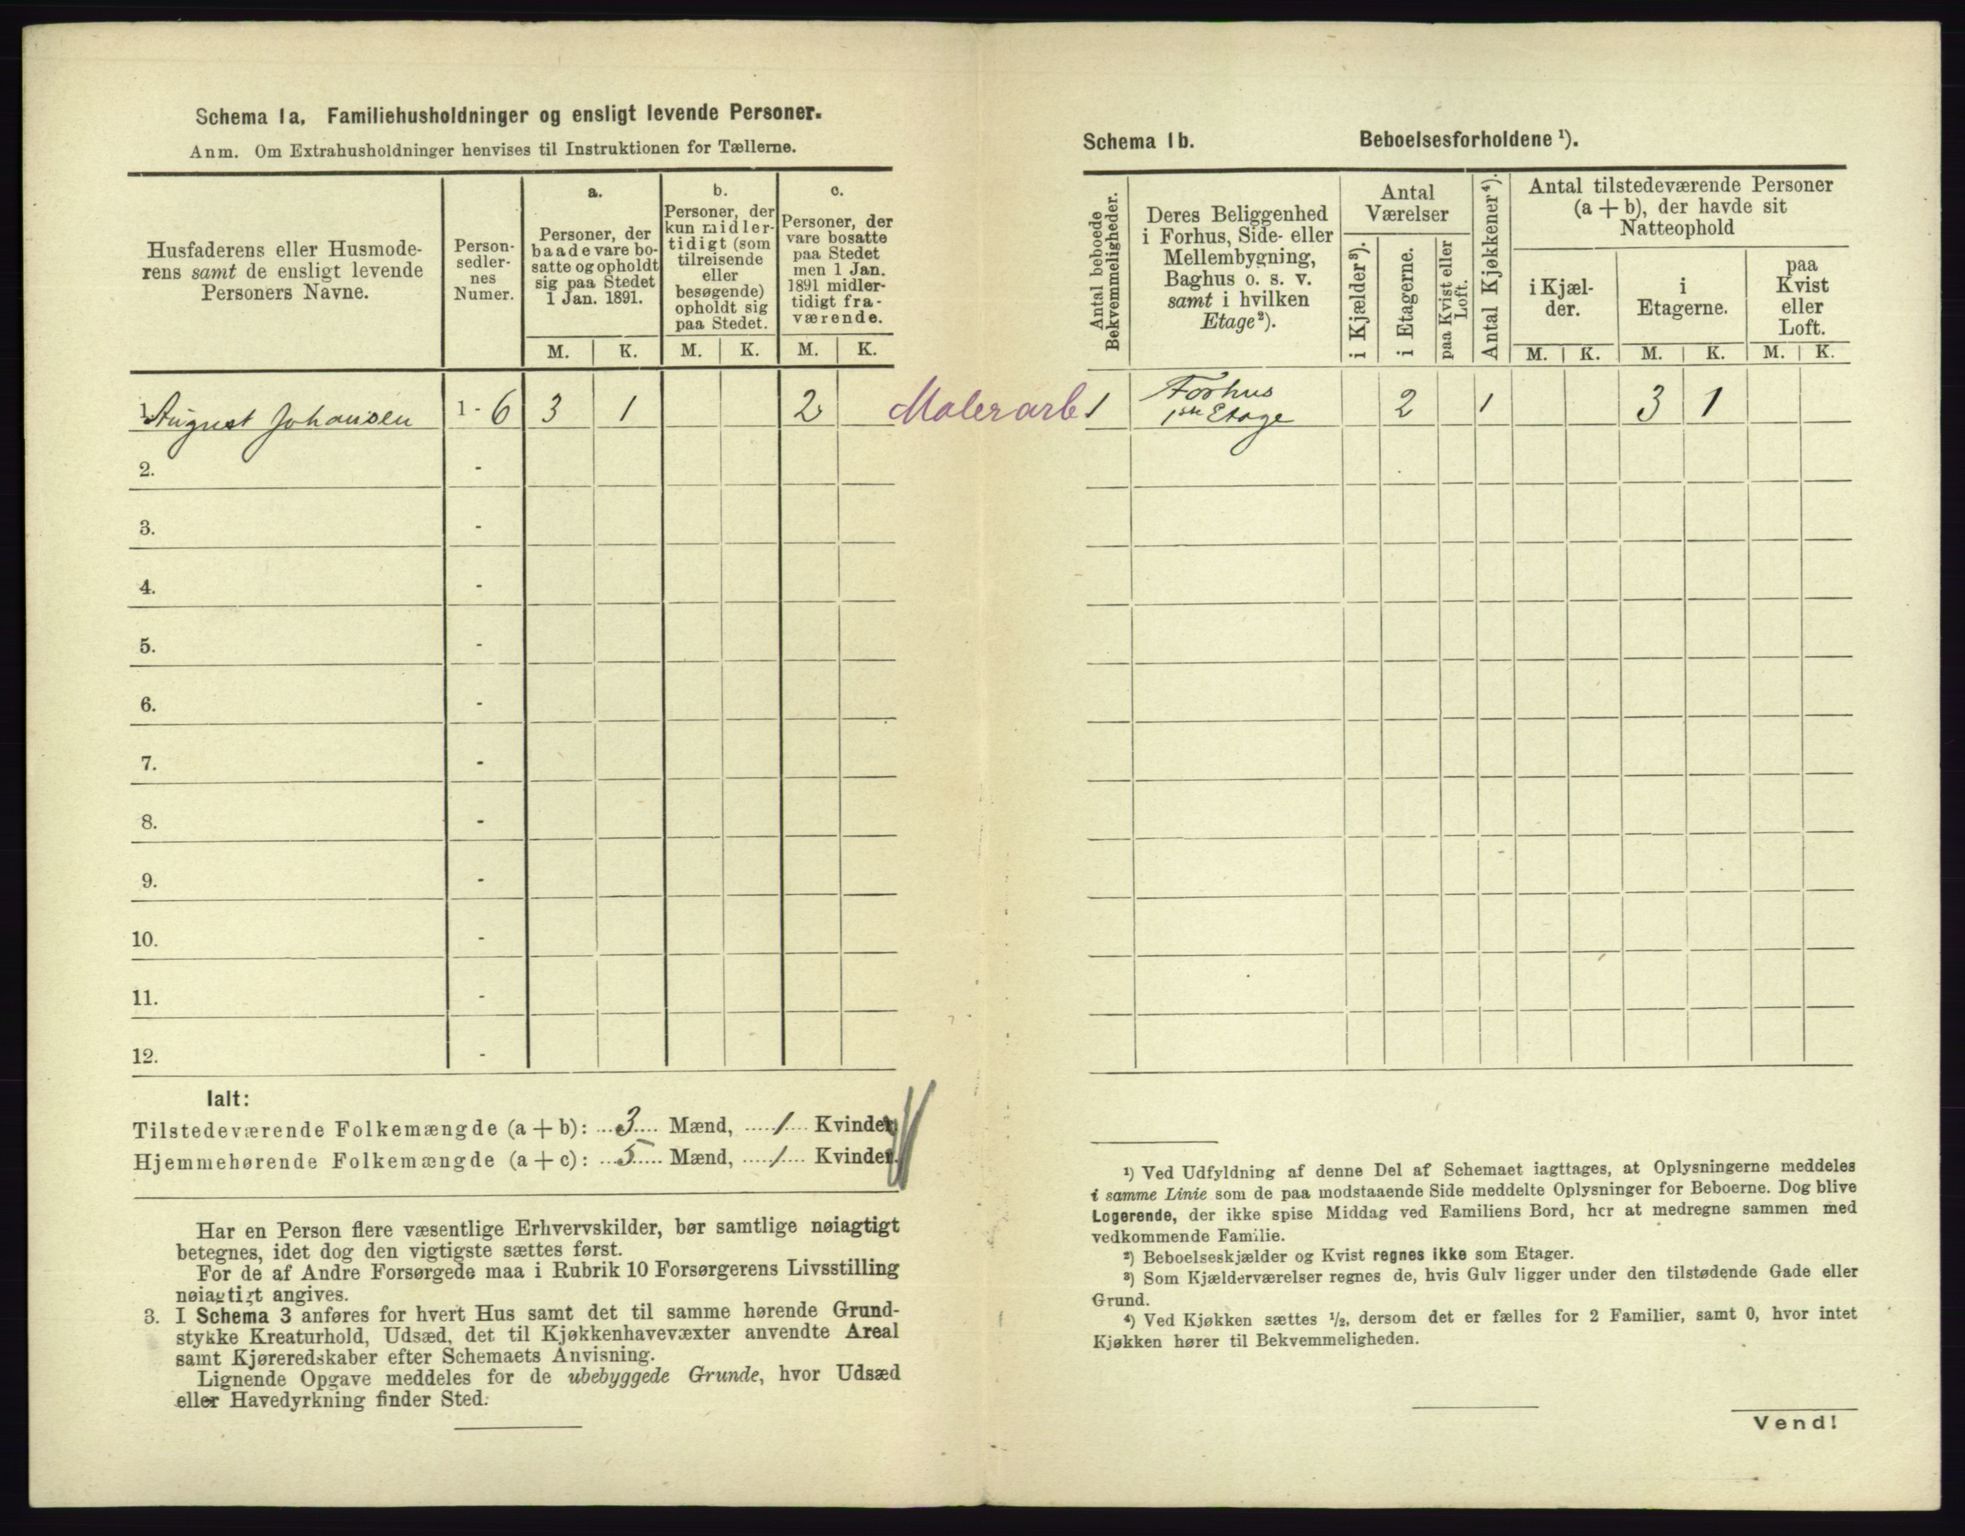 Schema 1a. Familiehusholdninger og ensligt levende Personer.
Anm. Om Extrahusholdninger henvises til Instruktionen for Tællerne.
Husfaderens eller Husmode-
rens samt de ensligt levende
Personers Navne.
Person-
sedler-
nes
Numer.
a.
Personer, der
baade vare bo-
satte og opholdt
sig paa Stedet
1 Jan. 1891.
b.
Personer, der
kun midler-
tidigt (som
tilreisende
eller
besøgende)
opholdt sig
paa Stedet.
c.
Personer, der
vare bosatte
paa Stedet
men 1 Jan.
1891 midler-
tidigt fra-
værende.
M. K. M. K. M. K.
1. August Johansen 1 - 6 3 1 2 Malerarb
2. -
3. -
4. -
5. -
6. -
7. -
8. -
9. -
10. -
11. -
12. -
Ialt:
Tilstedeværende Folkemængde (a + b): 3 Mænd, 1 Kvinder.
Hjemmehørende Folkemængde (a + c): 5 Mænd, 1 Kvinder.
Har en Person flere væsentlige Erhvervskilder, bør samtlige nøiagtigt
betegnes, idet dog den vigtigste sættes først.
For de af Andre Forsørgede maa i Rubrik 10 Forsørgerens Livsstilling
nøiagtigt angives.
3. I Schema 3 anføres for hvert Hus samt det til samme hørende Grund-
stykke Kreaturhold, Udsæd, det til Kjøkkenhavevæxter anvendte Areal
samt Kjøreredskaber efter Schemaets Anvisning.
Lignende Opgave meddeles for de ubebyggede Grunde, hvor Udsæd
eller Havedyrkning finder Sted.
Schema 1b. Beboelsesforholdene ¹).
Antal beboede
Bekvemmeligheder.
Deres Beliggenhed
i Forhus, Side- eller
Mellembygning,
Baghus o. s. v.
samt i hvilken
Etage²).
Antal
Værelser
i Kjælder³).
i Etagerne.
paa Kvist eller
Loft.
Antal Kjøkkener⁴).
Antal tilstedeværende Personer
(a + b), der havde sit
Natteophold
i Kjæl-
der.
i
Etagerne.
paa
Kvist
eller
Loft.
M. K. M. K. M. K.
1 Forhus
1ste Etage 2 1 3 1
¹) Ved Udfyldning af denne Del af Schemaet iagttages, at Oplysningerne meddeles
i samme Linie som de paa modstaaende Side meddelte Oplysninger for Beboerne. Dog blive
Logerende, der ikke spise Middag ved Familiens Bord, her at medregne sammen med
vedkommende Familie.
²) Beboelseskjælder og Kvist regnes ikke som Etager.
³) Som Kjælderværelser regnes de, hvis Gulv ligger under den tilstødende Gade eller
Grund.
⁴) Ved Kjøkken sættes ½, dersom det er fælles for 2 Familier, samt 0, hvor intet
Kjøkken hører til Bekvemmeligheden.
Vend!